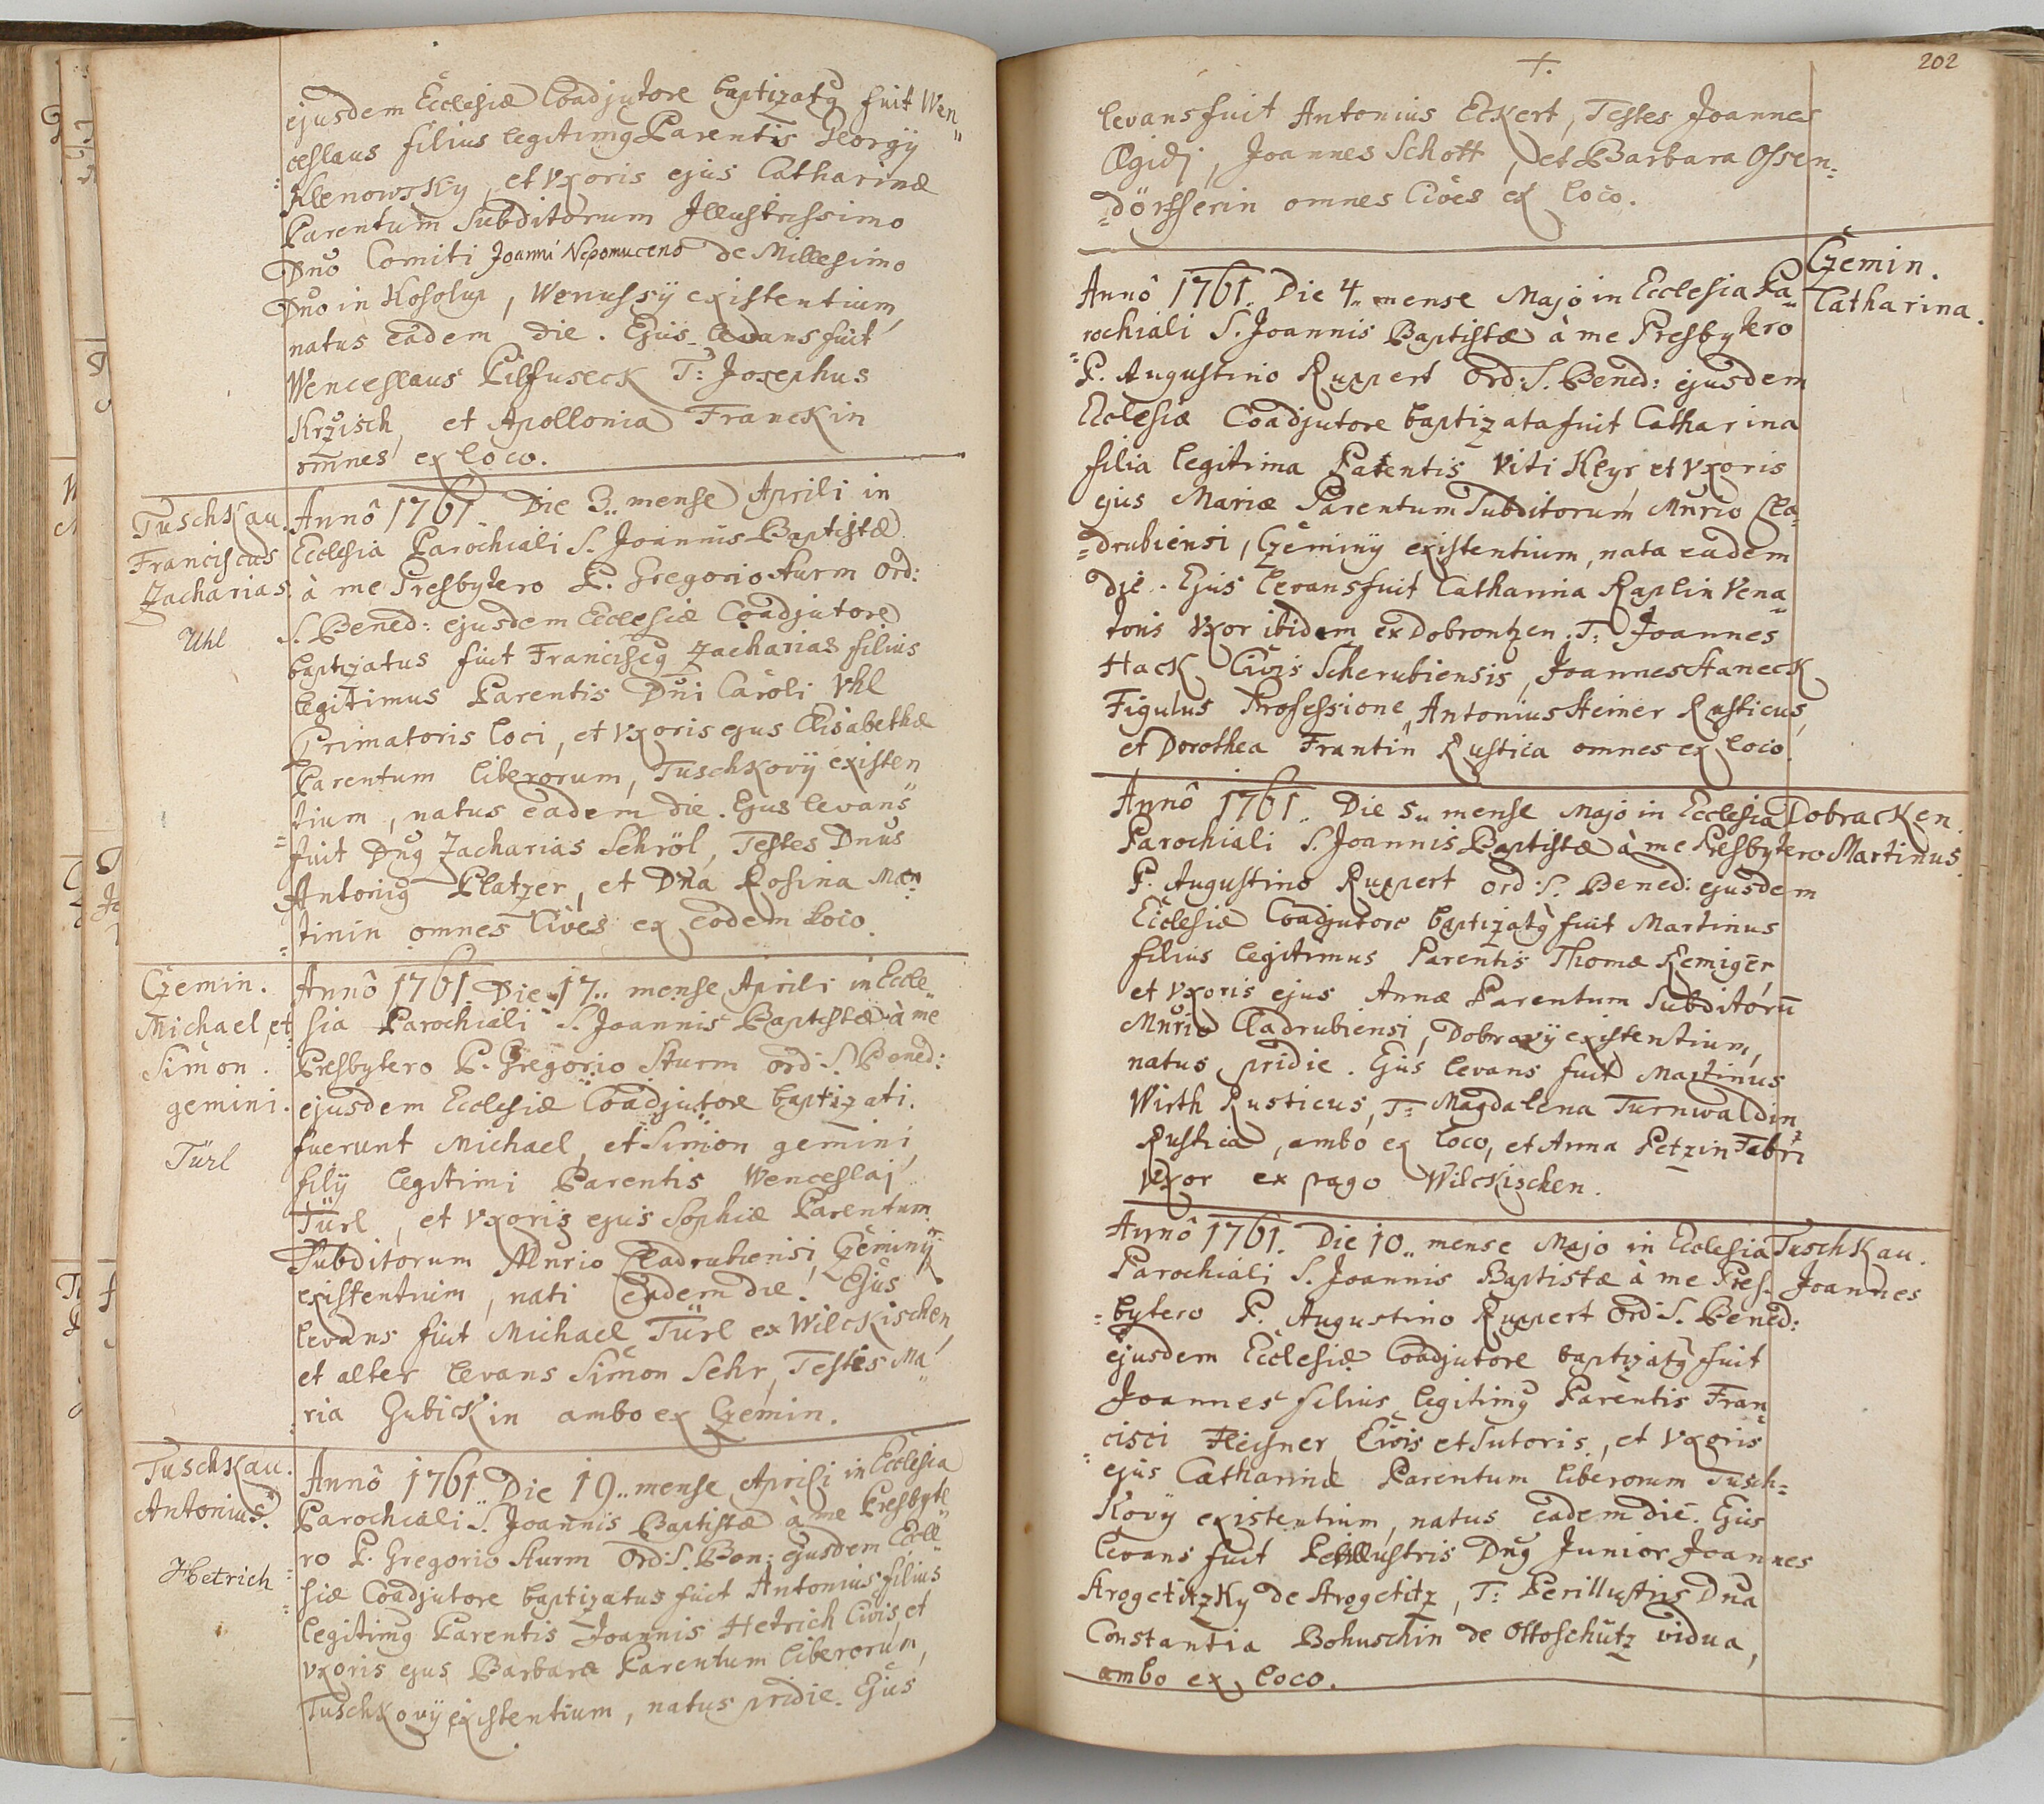 ejusdem Ecclesiæ Coadjutore baptizatq fuit Wen„
ceslaus filius legitimq Parentis Georgÿ
Klenowsky, et Vxoris ejus Catharinæ
Parentum Subditorum Illustrissimo
Dno Comiti Joanni Nepomuceno de Millesimo
Dno in Kosolup, Wenussÿ existentium,
natus eadem die. Ejus levans fuit
Wenceslaus Pilsuseck T: Josephus
Krzisch, et Apollonia Franckin
omnes ex loco.
Tuschkau.
Franciscus
Zacharias.
Uhl
Annô 1761. Die 3.. mense Aprili in
Ecclesia Parochiali S. Joannis Baptistæ
à me Presbytero P. Gregorio Sturm Ord:
S. Bened: ejusdem Ecclesiæ Coadjutore
baptizatus fuit Franciscq Zacharias filius
legitimus Parentis Dni Caroli Vhl
Primatoris loci, et Vxoris ejus Elisabethæ
Parentum liberorum, Tuschkovÿ existen„
tium, natus eadem die. Ejus levans
fuit Dnq Zacharias Schröl, Testes Dnus
Antoniq Platzer, et Dna Rosina Mar„
tinin omnes Cives ex eodem loco.
Czemin.
Michael, et
Simon.
gemini.
Türl
Annô 1761. Die 17.. mense Aprili in Eccle„
sia Parochiali S. Joannis Baptistæ à me
Presbytero P. Gregorio Sturm Ord: S. Bened:
ejusdem Ecclesiæ Coadjutore baptizati
fuerunt Michael, et Simon gemini,
filÿ legitimi Parentis Wenceslaj
Türl, et Vxoris ejus Sophiæ Parentum
Subditorum Mnrio Cladrubiensi, Czeminÿ
existentium, nati eadem die. Ejus
levans fuit Michael Türl ex Wilckischen,
et alter levans Simon Sehr, Testis Ma„
ria Gubickin ambo ex Czemin.
Tuschkau.
Antonius.
Hetrich
Annô 1761. Die 19.. mense Aprili in Ecclesia
Parochiali S. Joannis Baptistæ à me Presbyte„
ro P. Gregorio Sturm Ord: S. Ben: ejusdem Eccle„
siæ Coadjutore baptizatus fuit Antonius filius
legitimq Parentis Joannis Hetrich Civis, et
Vxoris ejus Barbaræ Parentum liberorum,
Tuschkovÿ existentium, natus pridie. Ejus
202
+.
levans fuit Antonius Eckert, Testes Joannes
Ægidj, Joannes Schott, et Barbara Ossen=
=dörfferin omnes Cives ex loco.
Czemin.
Catharina.
Annô 1761. Die 4.. mense Majo in Ecclesia Pa„
rochiali S. Joannis Baptistæ à me Presbytero
P. Augustino Ruppert Ord: S. Bened: ejusdem
Ecclesiæ Coadjutore baptizata fuit Catharina
filia legitima Parentis Viti Keyr et Vxoris
ejus Mariæ Parentum Subditorum Mnrio Cla=
=drubiensi, Czeminÿ existentium, nata eadem
die. Ejus levans fuit Catharina Raplin Vena„
toris Vxor ibidem ex Dobrontzen. T: Joannes
Hack Civis Scherubiensis, Joannes Staneck
Figulus Professione, Antonius Steiner Rusticus,
et Dorothea Frantin Rustica omnes ex loco.
Dobracken.
Martinus.
Annô 1761. Die 5.. mense Majo in Ecclesia
Parochiali S. Joannis Baptistæ à me Presbytero
P. Augustino Ruppert Ord: S. Bened: ejusdem
Ecclesiæ Coadjutore baptizatq fuit Martinus
filius legitimus Parentis Thomæ Remiger,
et Vxoris ejus Annæ Parentum Subditorū
Mnrio Cladrubiensi, Dobravÿ existentium,
natus pridie. Ejus levans fuit Martinus
Wirth Rusticus, T: Magdalena Turnwaldin
Rustica, ambo ex loco, et Anna Petzin Fabri
Vxor ex pago Wilckischen.
Tuschkau.
Joannes
Annô 1761. Die 10.. mense Majo in Ecclesia
Parochiali S. Joannis Baptistæ à me Pres-
=bytero P. Augustino Ruppert Ord: S. Bened:
ejusdem Ecclesiæ Coadjutore baptizatq fuit
Joannes filius legitimq Parentis Fran„
cisci Fleisner Civis et Sutoris, et Vxoris
ejus Catharinæ Parentum liberorum Tusch=
kovÿ existentium, natus eadem die. Ejus
levans fuit Perillustris Dnq Junior Joannes
Strogetitzky de Strogetitz, T: Perillustris Dna
Constantia Bohuschin de Ottoschütz vidua,
ambo ex loco.